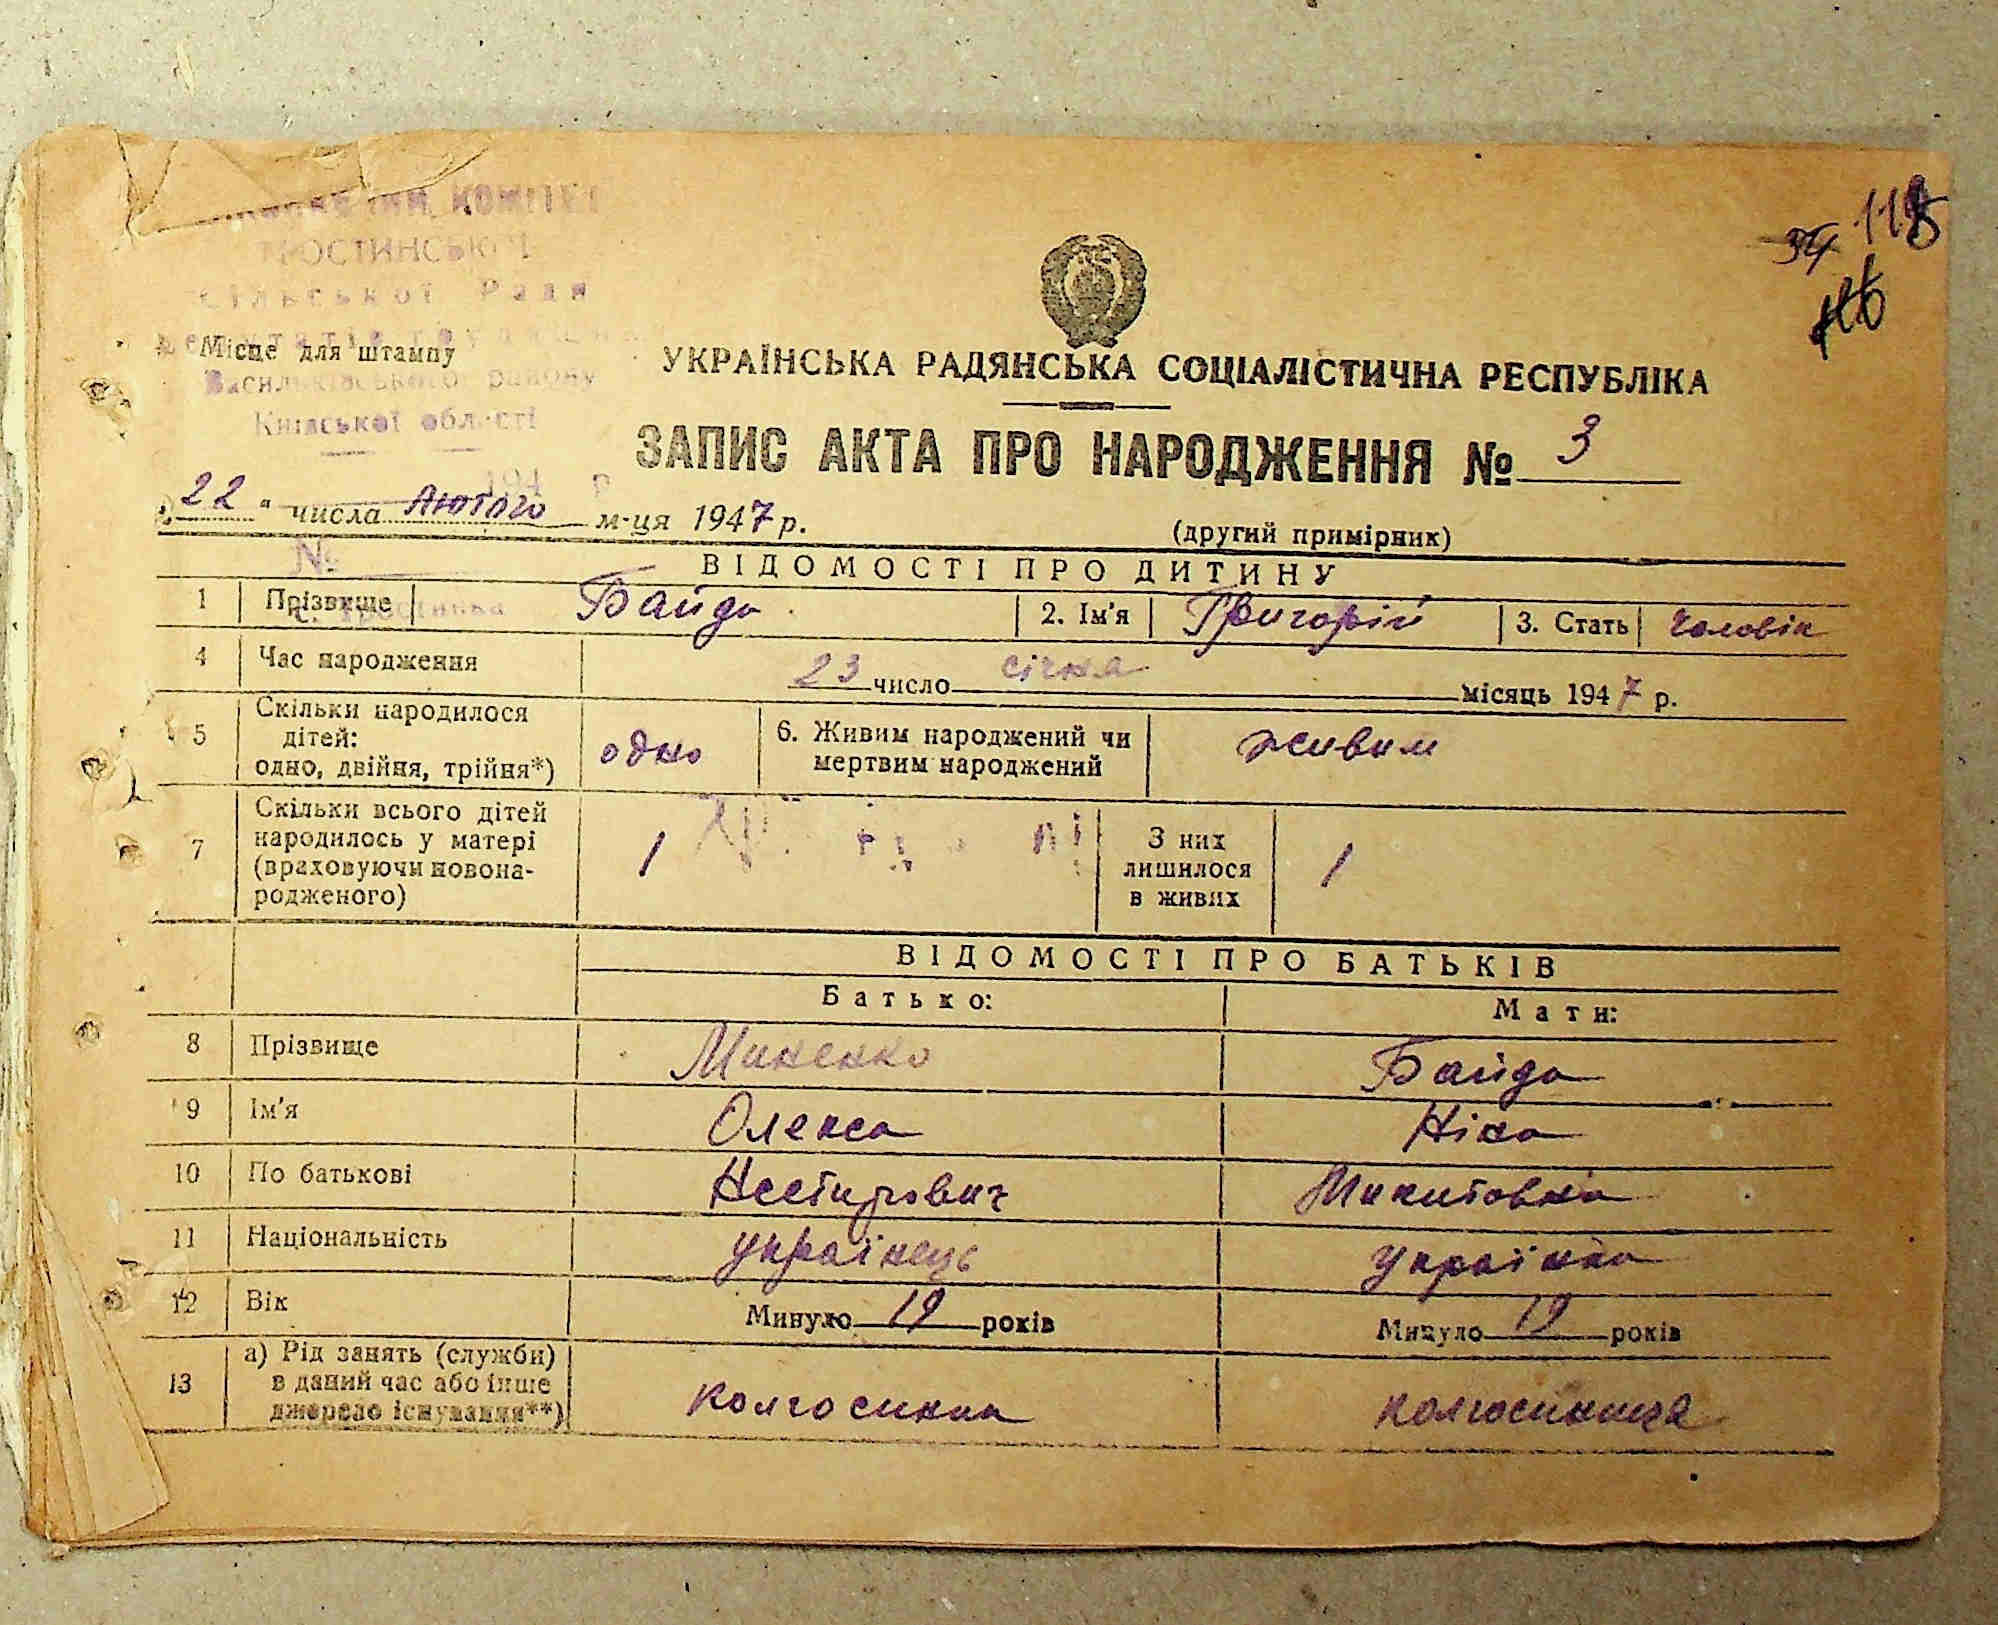 КОМІТЕТ
ТРОСТИНСЬКОЇ
Сільської Ради
Місце для штампу
Васильківського району
Київської області
194 р
118
34
УКРАЇНСЬКА РАДЯНСЬКА СОЦІАЛІСТИЧНА РЕСПУБЛІКА
ЗАПИС АКТА ПРО НАРОДЖЕННЯ № 3
„22" числа Лютого м-ця 1947 р.
(другий примірник)
№
с. Тростинка
ВІДОМОСТІ ПРО ДИТИНУ
1 Прізвище Байда 2. Ім'я Григорій 3. Стать чоловік
4 Час народження 23 число січня місяць 1947 р.
5 Скільки народилося
дітей:
одно, двійня, трійня*) одно 6. Живим народжений чи
мертвим народжений живим
7 Скільки всього дітей
народилось у матері
(враховуючи новона-
родженого) 1 З них
лишилося
в живих 1
ВІДОМОСТІ ПРО БАТЬКІВ
Батько: Мати:
8 Прізвище Миненко Байда
9 Ім'я Олекса Ніна
10 По батькові Нестирович Микитовна
11 Національність українець українка
12 Вік Минуло 19 років Минуло 19 років
13 а) Рід занять (служби)
в даний час або інше
джерело існування**) колгоспник колгоспниця